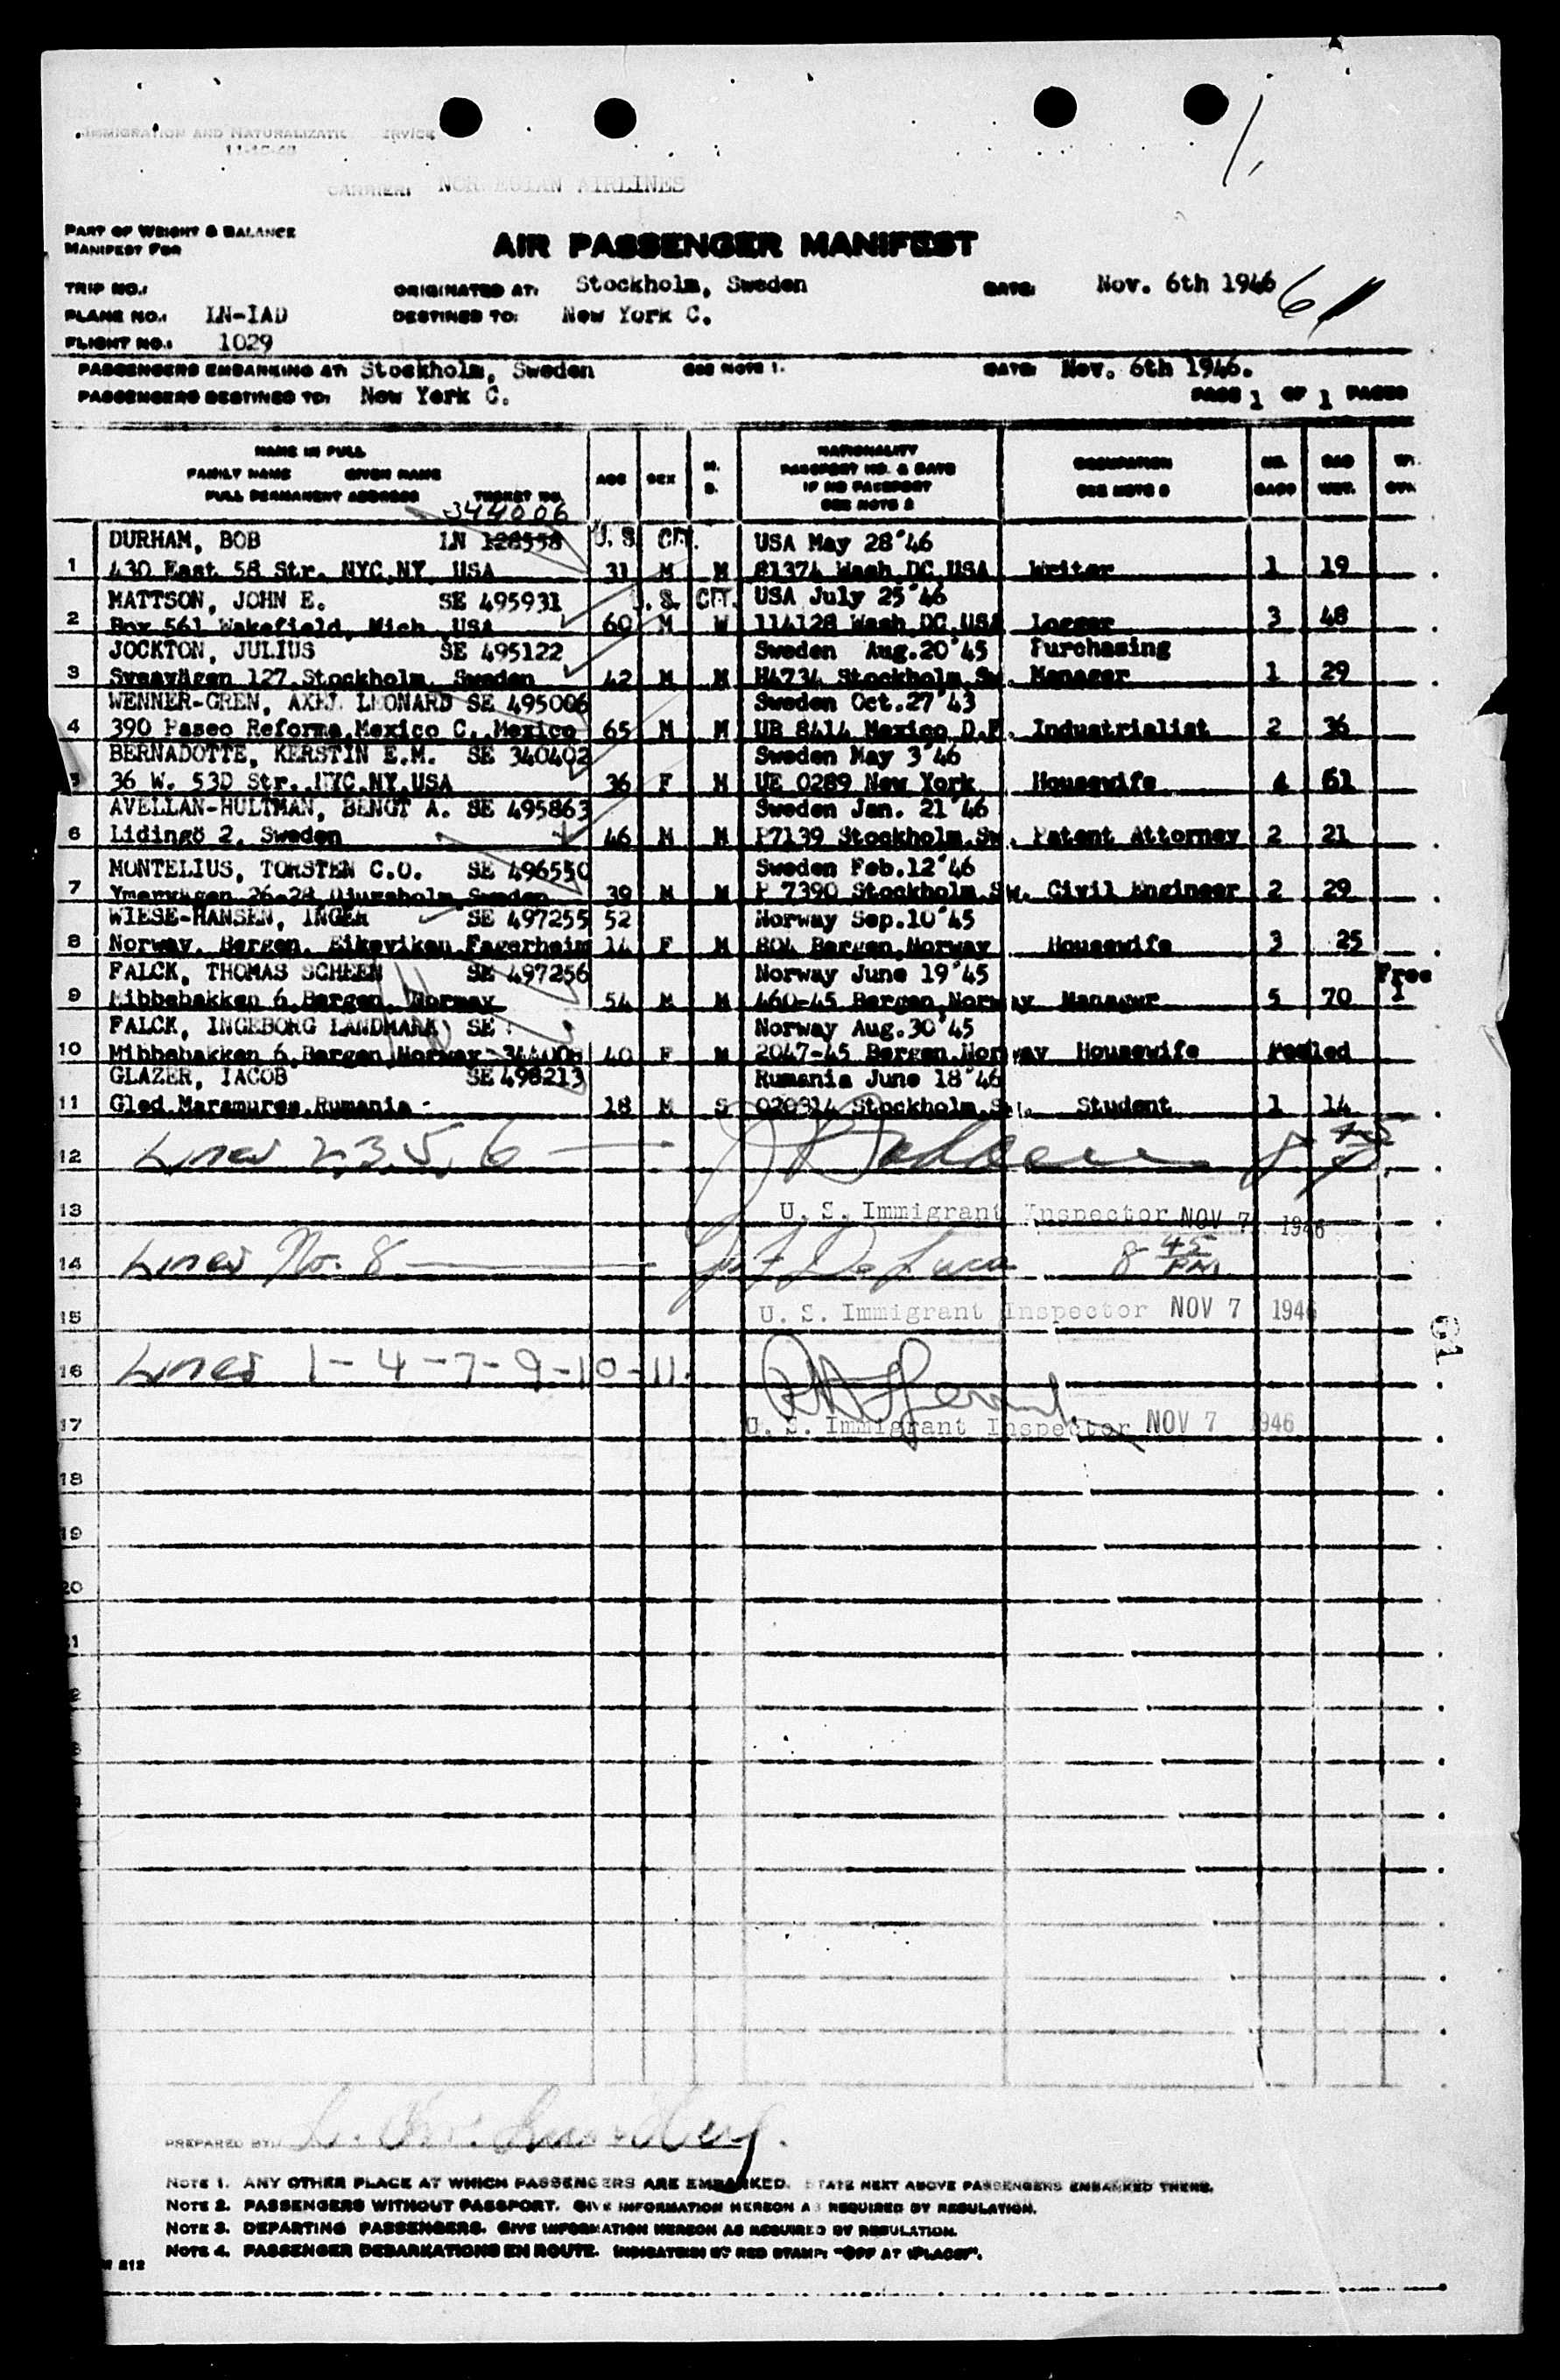 Immigration and Naturalizatic ervice
11-15-43
CARRIER: NOR EGIAN AIRLINES
PART OF WEIGHT & BALANCE
MANIFEST FOR
AIR PASSENGER MANIFEST
TRIP NO.: ORIGINATED AT: Stockholm, Sweden DATE: Nov. 6th 1946 61
PLANE NO.: LN-IAD DESTINED TO: New York C.
FLIGHT NO.: 1029
PASSENGERS EMBARKING AT: Stockholm, Sweden SEE NOTE 1. DATE: Nov. 6th 1946.
PASSENGERS DESTINED TO: New York C. PAGE 1 OF 1 PAGES
NAME IN FULL
FAMILY NAME GIVEN NAME
FULL PERMANENT ADDRESS TICKET NO.
AGE SEX M. S.
NATIONALITY
PASSPORT NO. & DATE
IF NO PASSPORT
SEE NOTE 2
OCCUPATION
SEE NOTE 3
NO. BAGS BAG WGT. WT.
344006
DURHAM, BOB LN 128558 U. S. CIT. USA May 28'46
1 430 East 58 Str. NYC,NY, USA 31 M M 81374 Wash,DC,USA Writer 1 19
MATTSON, JOHN E. SE 495931 . S. CIT. USA July 25'46
2 Box 561 Wakefield, Mich. USA 60 M W 114128 Wash,DC,USA Logger 3 48
JOCKTON, JULIUS SE 495122 Sweden Aug.20'45 Purchasing
3 Sveavägen 127,Stockholm, Sweden 42 M M H4734 Stockholm,Sw. Manager 1 29
WENNER-GREN, AXEL LEONARD SE 495006 Sweden Oct.27'43
4 390 Paseo Reforma,Mexico C.,Mexico 65 M M UR 8414 Mexico D.F. Industrialist 2 36
BERNADOTTE, KERSTIN E.M. SE 340402 Sweden May 3'46
5 36 W. 53D Str.,NYC,NY,USA 36 F M UE 0289 New York Housewife 4 61
AVELLAN-HULTMAN, BENGT A. SE 495863 Sweden Jan. 21'46
6 Lidingö 2, Sweden 46 M M P7139 Stockholm,Sw. Patent Attorney 2 21
MONTELIUS, TORSTEN C.O. SE 496550 Sweden Feb.12'46
7 Ymervägen 26-28,Djursholm,Sweden 39 M M P 7390 Stockholm,Sw. Civil Engineer 2 29
WIESE-HANSEN, INGER SE 497255 52 Norway Sep.10'45
8 Norway, Bergen, Eikeviken Fagerheim 14 F M 804 Bergen,Norway Housewife 3 25
FALCK, THOMAS SCHEEN SE 497256 Norway June 19'45 Free
9 Mibbebakken 6,Bergen, Norway 54 M M 460-45 Bergen,Norway Manager 5 70 1
FALCK, INGEBORG LANDMARK SE Norway Aug.30'45
10 Mibbebakken 6,Bergen,Norway 344008 40 F M 2047-45 Bergen,Norway Housewife Pooled
GLAZER, IACOB SE 498213 Rumania June 18'46
11 Glod,Maramures,Rumania 18 M S 020314 Stockholm,S Student 1 14
12 Lines 2,3,5,6
13 U. S. Immigrant Inspector NOV 7 1946
14 Lines No. 8 De Luca 8 45 PM
15 U. S. Immigrant Inspector NOV 7 1946
16 Lines 1-4-7-9-10-11.
17 U. S. Immigrant Inspector NOV 7 1946
61
18
19
20
PREPARED BY:
NOTE 1. ANY OTHER PLACE AT WHICH PASSENGERS ARE EMBARKED. STATE NEXT ABOVE PASSENGERS EMBARKED THERE.
NOTE 2. PASSENGERS WITHOUT PASSPORT. GIVE INFORMATION HEREON AS REQUIRED BY REGULATION.
NOTE 3. DEPARTING PASSENGERS. GIVE INFORMATION HEREON AS REQUIRED BY REGULATION.
NOTE 4. PASSENGER DEBARKATIONS EN ROUTE. INDICATION BY RED STAMP: "OFF AT (PLACE)".
212